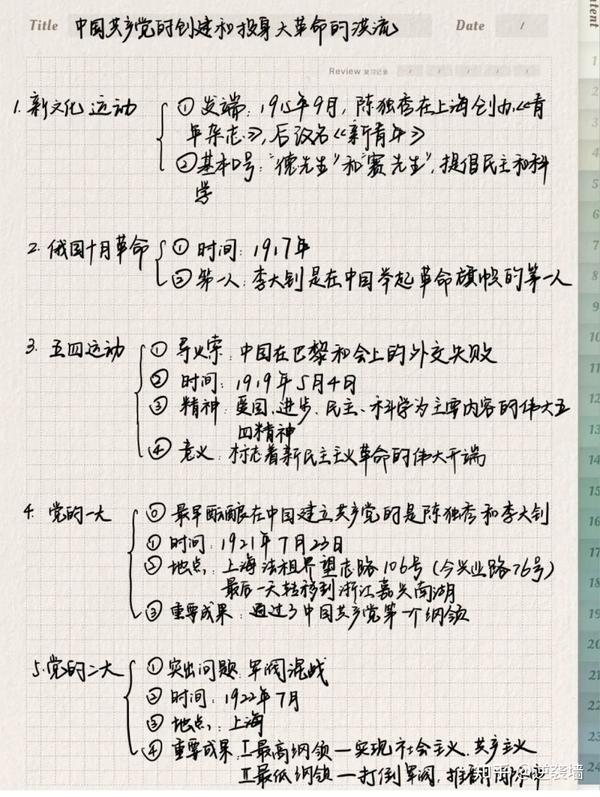 Title 中国共产党的创建和投身大革命的洪流 Date /
Content
Review 复习记录 / / / / /
1. 新文化运动 ① 发端：1915年9月，陈独秀在上海创办《青
年杂志》，后改名《新青年》
② 基本口号："德先生"和"赛先生"，提倡民主和科
学
2. 俄国十月革命 ① 时间：1917年
② 第一人：李大钊是在中国举起革命旗帜的第一人
3. 五四运动 ① 导火索：中国在巴黎和会上的外交失败
② 时间：1919年5月4日
③ 精神：爱国、进步、民主、科学为主要内容的伟大五
四精神
④ 意义：标志着新民主主义革命的伟大开端
4. 党的一大 ⓪ 最早酝酿在中国建立共产党的是陈独秀和李大钊
① 时间：1921年7月23日
② 地点：上海法租界望志路106号（今兴业路76号）
最后一天转移到浙江嘉兴南湖
③ 重要成果：通过了中国共产党第一个纲领
5. 党的二大 ① 突出问题：军阀混战
② 时间：1922年7月
③ 地点：上海
④ 重要成果：Ⅰ最高纲领—实现社会主义、共产主义
Ⅱ最低纲领—打倒军阀，推翻
知乎 @逆袭墙
1
2
3
4
5
6
7
8
9
10
11
12
13
14
15
16
17
18
19
20
21
22
23
24